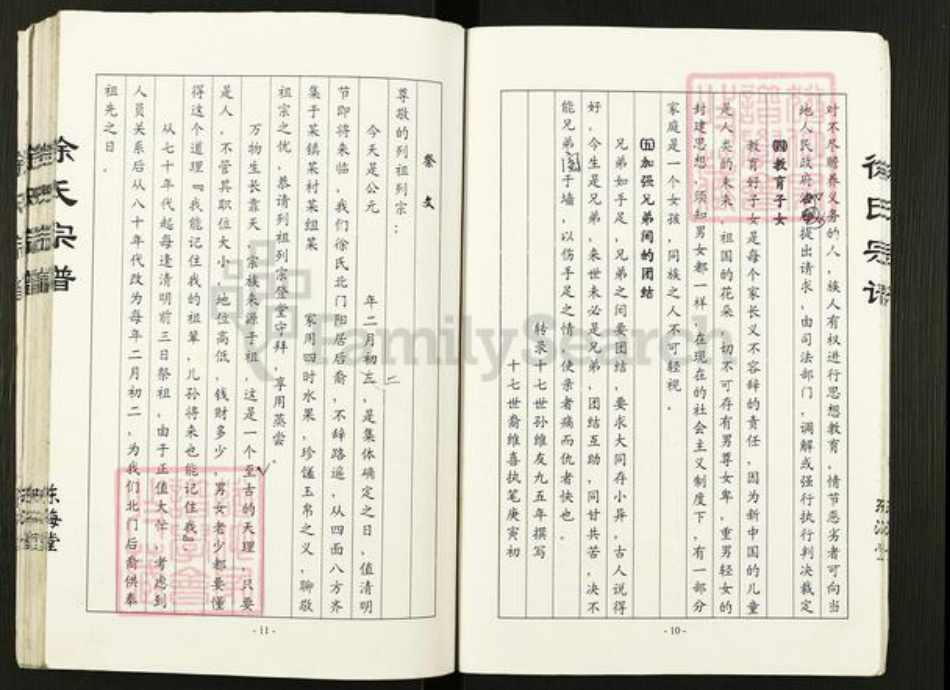 徐氏宗谱
对不尽赡养义务的人，族人有权进行思想教育，情节恶劣者可向当
地人民政府提出请求，由司法部门，调解或强行执行判决裁定
㈣教育子女
教育好子女是每个家长义不容辞的责任，因为新中国的儿童
是人类的未来，祖国的花朵，一切不可存有男尊女卑，重男轻女的
封建思想，须知男女都一样，在现在的社会主义制度下，有一部分
家庭是一个女孩，同族之人不可轻视。
㈤加强兄弟间的团结
兄弟如手足，兄弟之间要团结，要求大同存小异，古人说得
好，今生是兄弟，来世未必是兄弟，团结互助，同甘共苦，决不
能兄弟阋于墙，以伤手足之情，使亲者痛而仇者快也。
转录十七世孙维友九五年撰写
十七世裔维喜执笔庚寅初
-10-
祭文
尊敬的列祖列宗：
今天是公元 年二月初二，是集体确定之日，值清明
节即将来临，我们徐氏北门阳居后裔，不辞路遥，从四面八方齐
集于某镇某村某组某 家用四时水果，珍馐玉帛之义，聊敬
祖宗之忧，恭请列祖列宗登堂守拜，享用蒸尝。
万物生长靠天，宗族来源于祖，这是一个至古的天理，只要
是人，不管其职位大小，地位高低，钱财多少，男女老少都要懂
得这个道理『我能记住我的祖辈，儿孙将来也能记住我』
从七十年代起每逢清明前三日祭祖，由于正值大忙，考虑到
人员关系后从八十年代改为每年二月初二，为我们北门后裔供奉
祖先之日。
-11-
徐氏宗谱
东海堂
FamilySearch